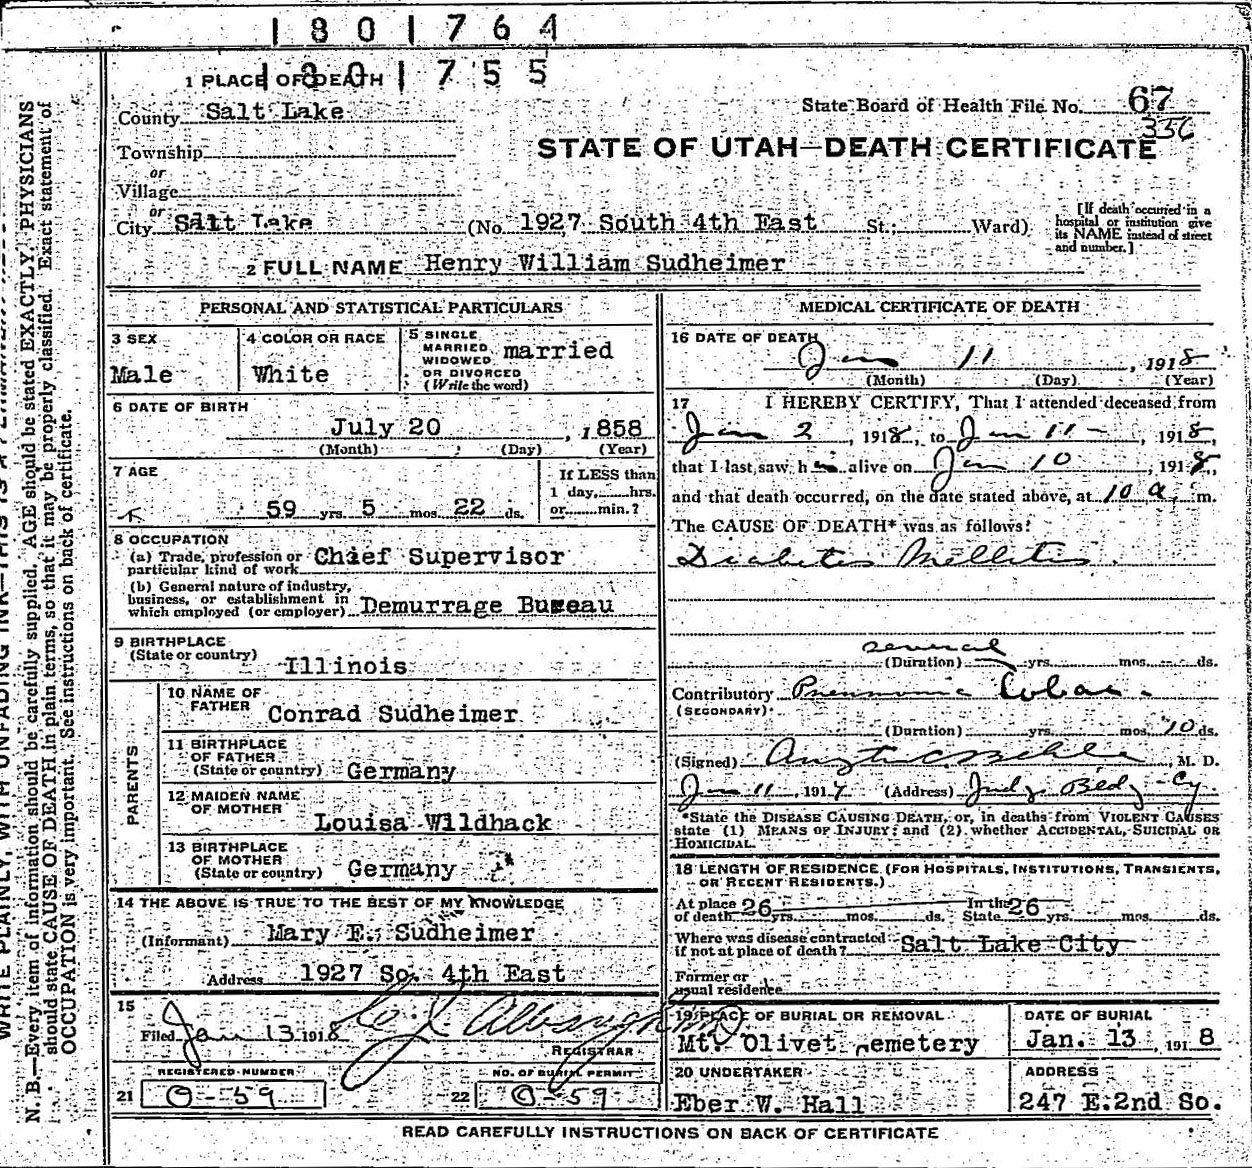 1801764
1801755
1 PLACE OF DEATH
County Salt Lake
State Board of Health File No. 67
356
Township
or
Village
or
STATE OF UTAH—DEATH CERTIFICATE
City Salt Lake (No. 1927 South 4th East St.; Ward)
[If death occurred in a
hospital or institution give
its NAME instead of street
and number.]
2 FULL NAME Henry William Sudheimer
PERSONAL AND STATISTICAL PARTICULARS
3 SEX
Male
4 COLOR OR RACE
White
5 SINGLE
MARRIED
WIDOWED
OR DIVORCED
(Write the word)
married
6 DATE OF BIRTH
July 20, 1858
(Month) (Day) (Year)
7 AGE
59 yrs. 5 mos. 22 ds.
If LESS than
1 day, hrs.
or min.?
8 OCCUPATION
(a) Trade, profession or
particular kind of work Chief Supervisor
(b) General nature of industry,
business, or establishment in
which employed (or employer) Demurrage Bureau
9 BIRTHPLACE
(State or country)
Illinois
PARENTS
10 NAME OF
FATHER
Conrad Sudheimer
11 BIRTHPLACE
OF FATHER
(State or country) Germany
12 MAIDEN NAME
OF MOTHER
Louisa Wildhack
13 BIRTHPLACE
OF MOTHER
(State or country) Germany
14 THE ABOVE IS TRUE TO THE BEST OF MY KNOWLEDGE
(Informant) Mary E. Sudheimer
Address 1927 So. 4th East
15
Filed Jan 13 1918
REGISTRAR
REGISTERED NUMBER
21 O-59
NO. OF BURIAL PERMIT
22 O-59
MEDICAL CERTIFICATE OF DEATH
16 DATE OF DEATH
Jan 11, 1918
(Month) (Day) (Year)
17 I HEREBY CERTIFY, That I attended deceased from
Jan 2, 1918, to Jan 11, 1918,
that I last saw him alive on Jan 10, 1918,
and that death occurred, on the date stated above, at 10 a. m.
The CAUSE OF DEATH* was as follows:
Diabetes Mellitis
several
(Duration) yrs. mos. ds.
Contributory Pneumonia Lobar
(SECONDARY)
(Duration) yrs. mos. 10 ds.
(Signed) , M. D.
Jan 11, 1917 (Address) Judge Bldg Cy
*State the DISEASE CAUSING DEATH, or, in deaths from VIOLENT CAUSES
state (1) MEANS OF INJURY; and (2) whether ACCIDENTAL, SUICIDAL OR
HOMICIDAL.
18 LENGTH OF RESIDENCE (FOR HOSPITALS, INSTITUTIONS, TRANSIENTS,
OR RECENT RESIDENTS.)
At place
of death 26 yrs. mos. ds.
In the
State 26 yrs. mos. ds.
Where was disease contracted
if not at place of death? Salt Lake City
Former or
usual residence
19 PLACE OF BURIAL OR REMOVAL
Mt. Olivet Cemetery
DATE OF BURIAL
Jan. 13, 1918
20 UNDERTAKER
Eber W. Hall
ADDRESS
247 E.2nd So.
READ CAREFULLY INSTRUCTIONS ON BACK OF CERTIFICATE
N. B.—Every item of information should be carefully supplied. AGE should be stated EXACTLY. PHYSICIANS
should state CAUSE OF DEATH in plain terms, so that it may be properly classified. Exact statement of
OCCUPATION is very important. See instructions on back of certificate.
WRITE PLAINLY, WITH UNFADING INK—THIS IS A PERMANENT